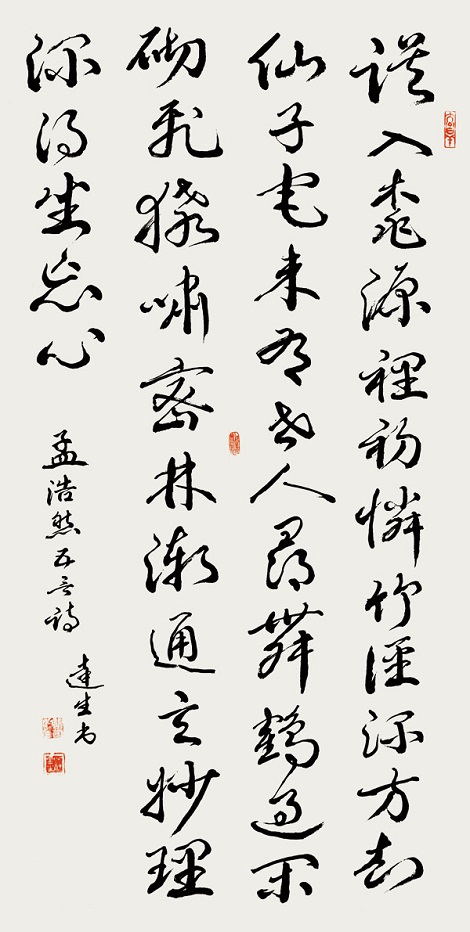 誤入桃源裡初憐竹徑深方知
仙子宅未有世人尋舞鶴過閑
砌飛猿嘯密林漸通玄妙理
深得坐忘心
孟浩然五言詩
達生书